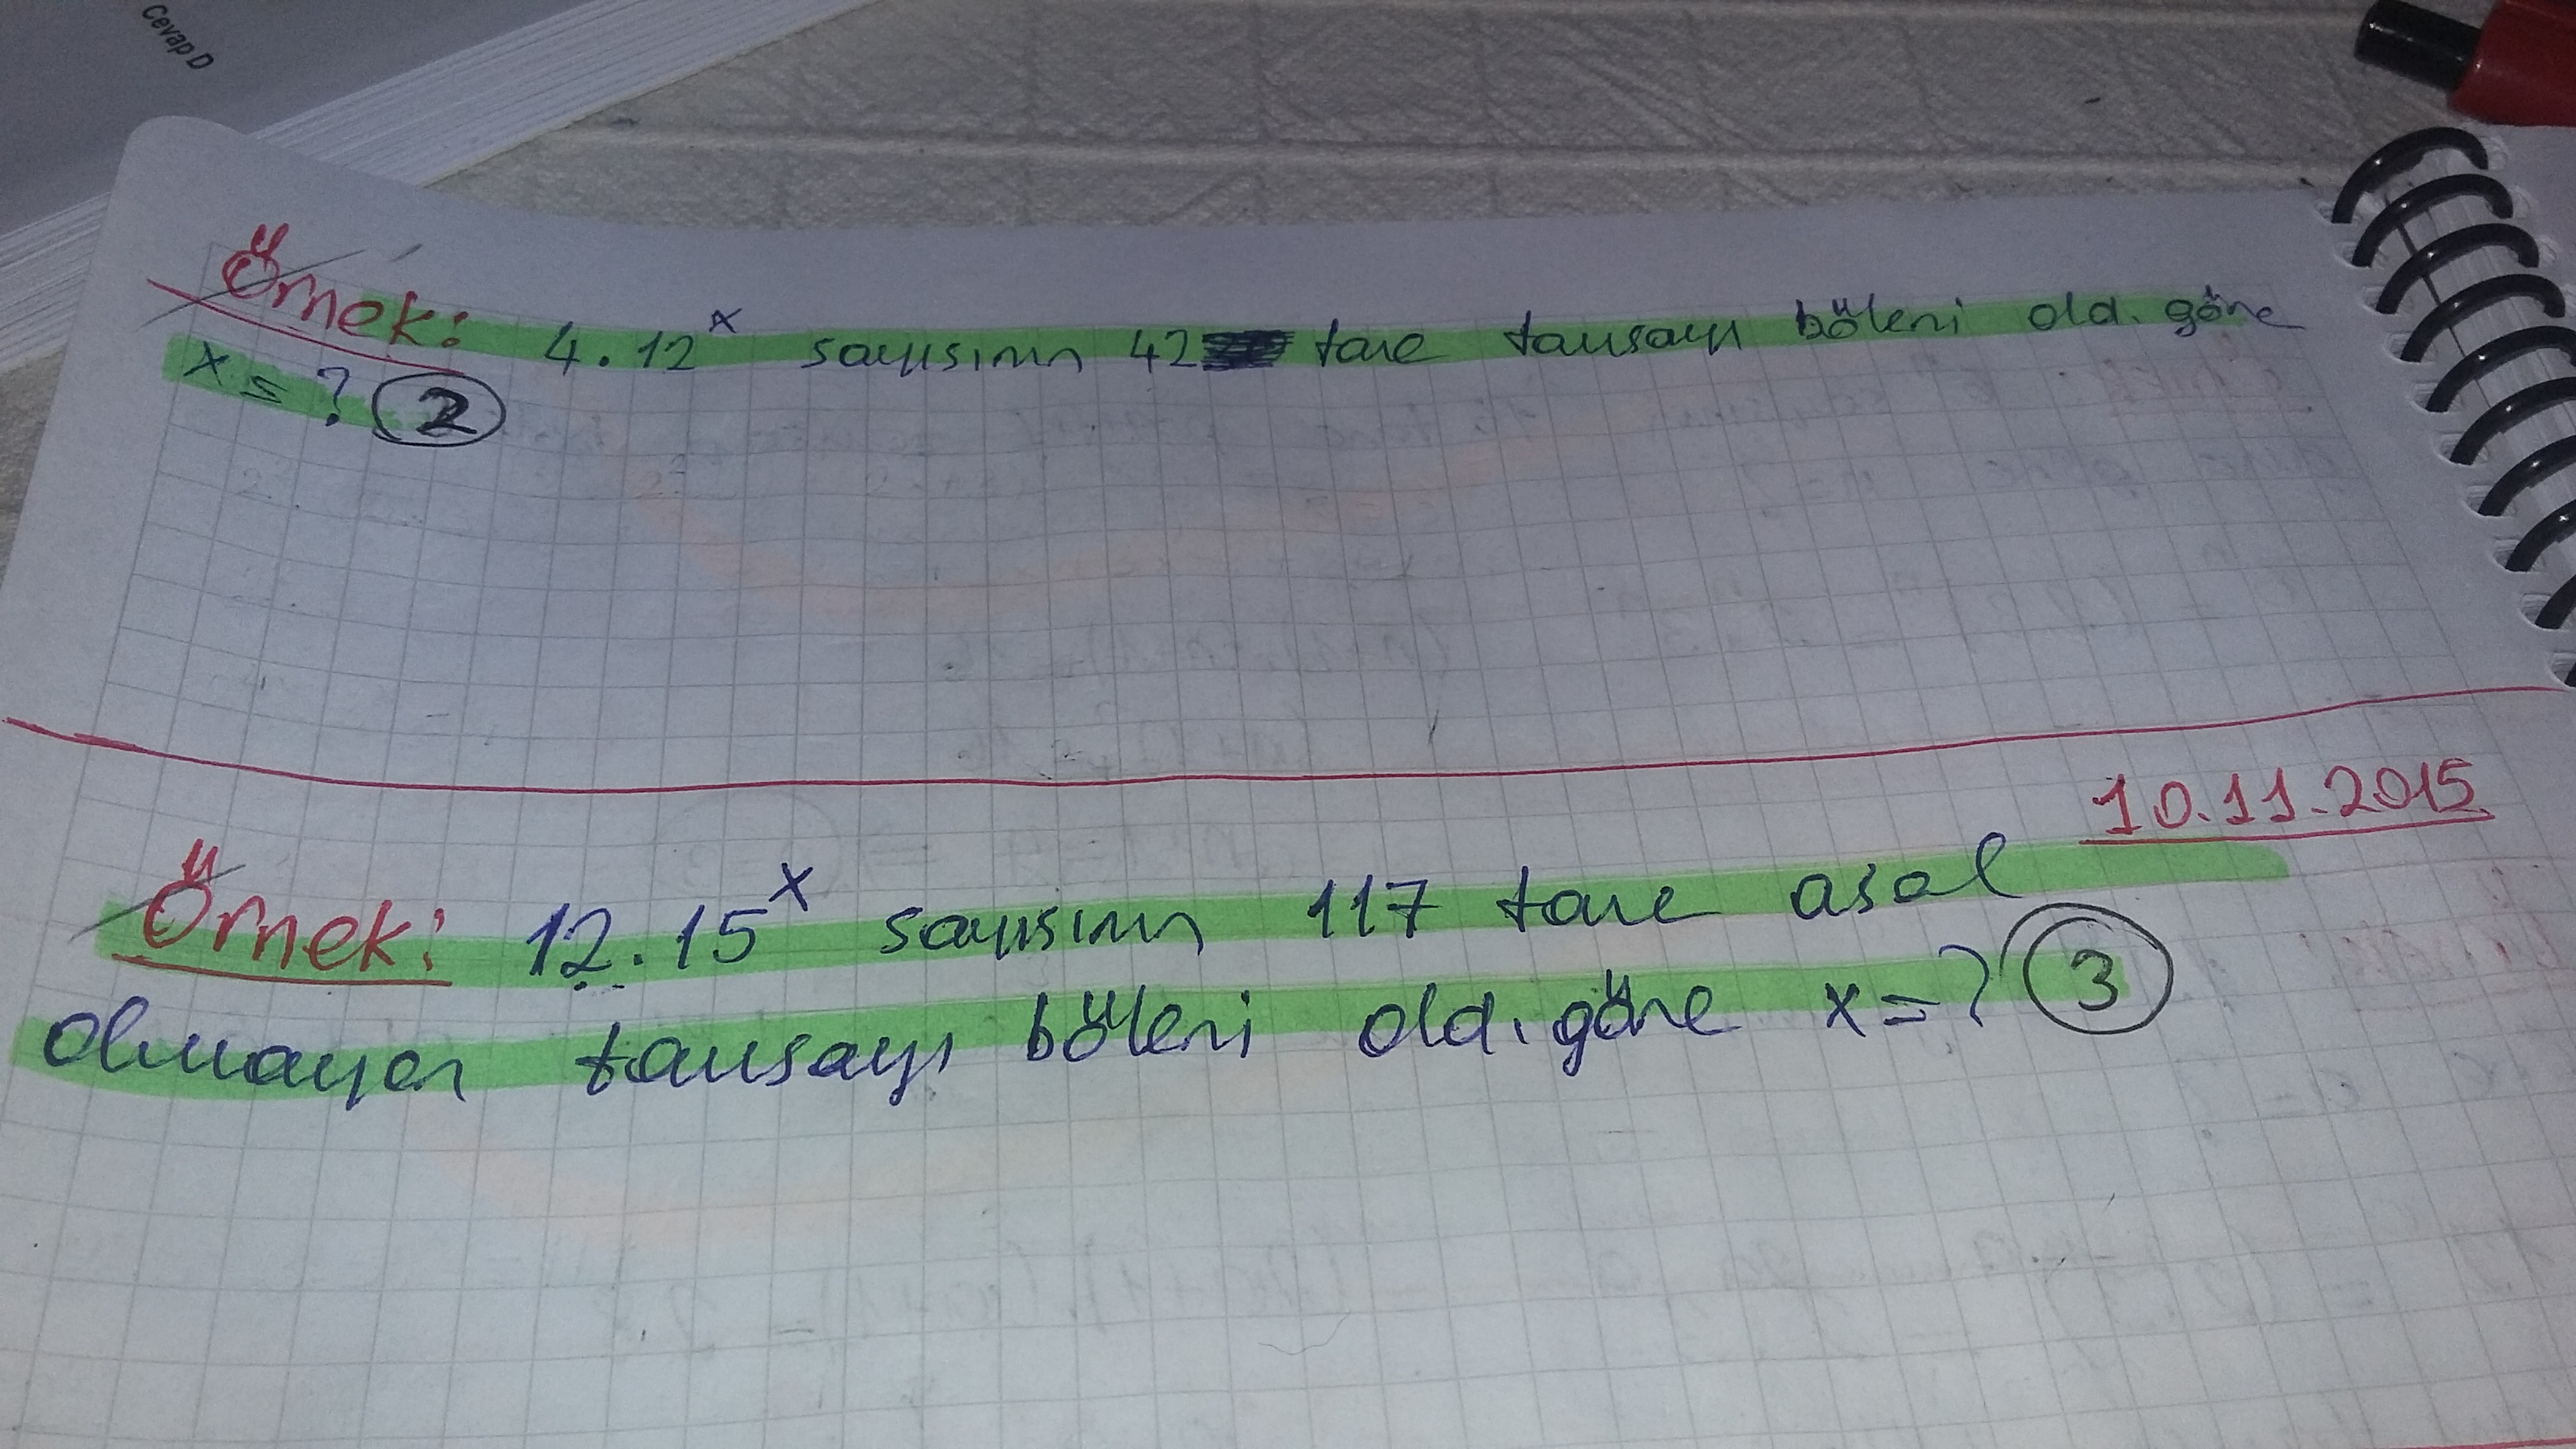 Cevap D
Örnek: 4.12^x sayısının 42 tane tamsayı böleni old. göre
x = ? 2
10.11.2015
Örnek: 12.15^x sayısının 117 tane asal
olmayan tamsayı böleni old. göre x = ? 3